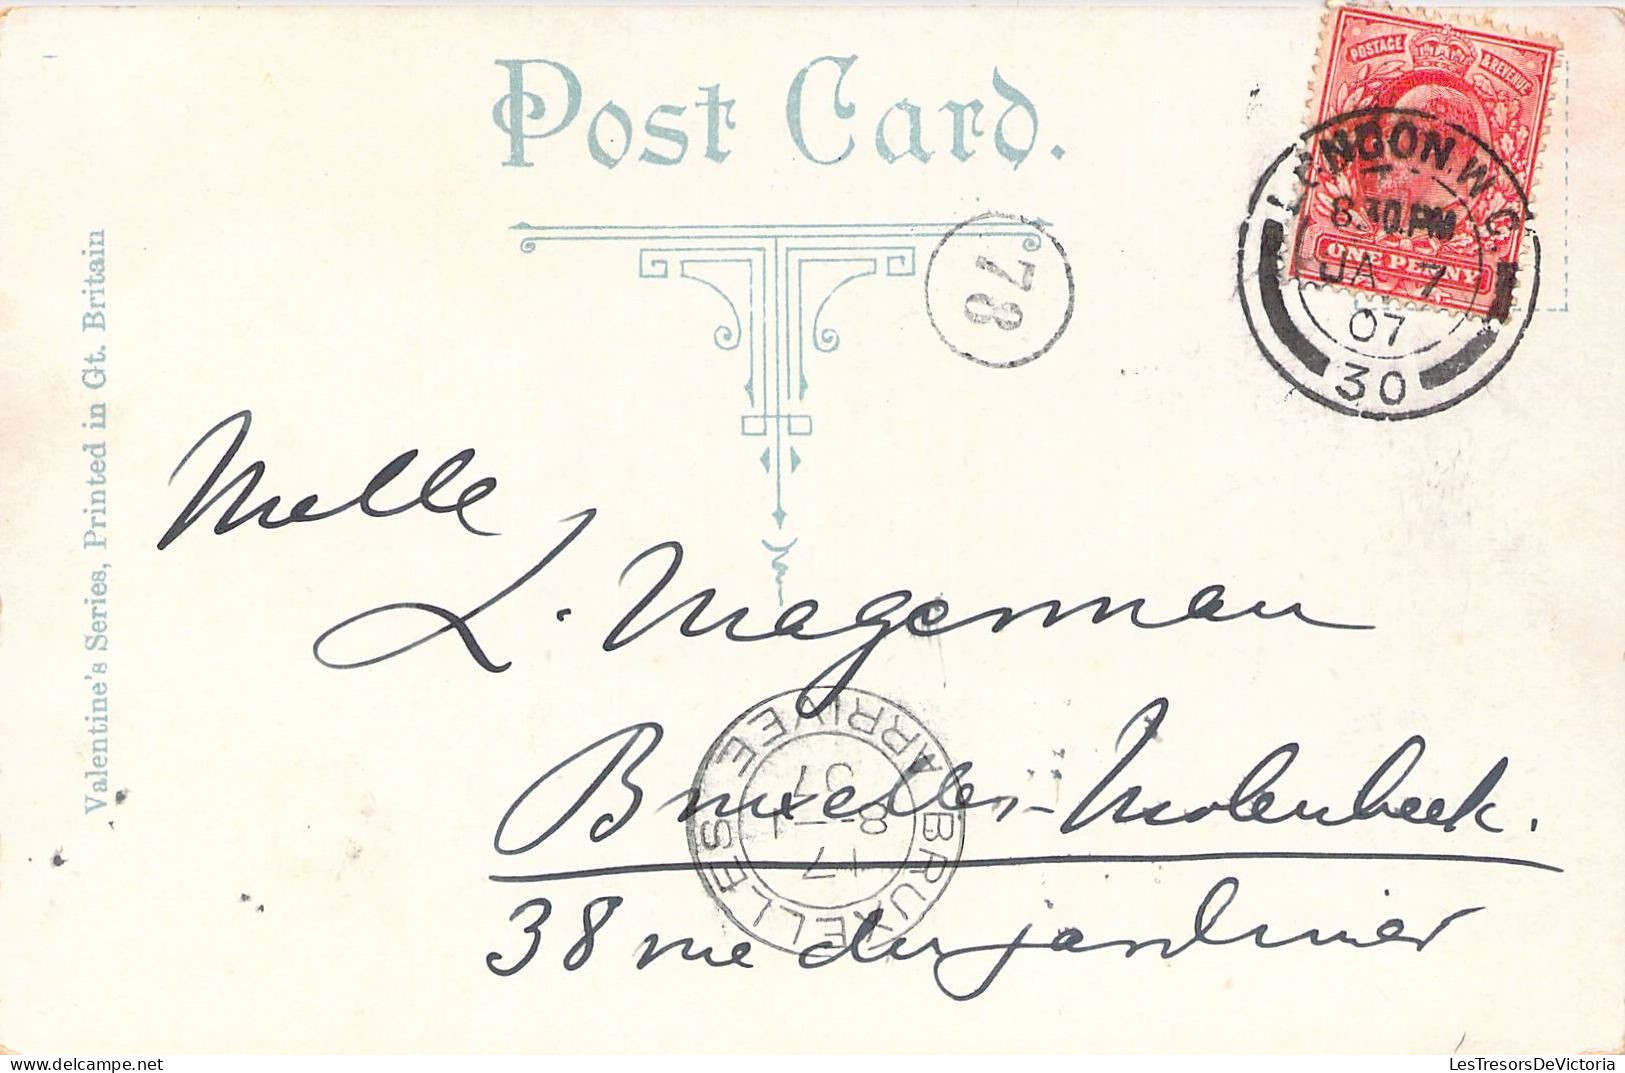 Post Card.
POSTAGE & REVENUE
ONE PENNY
LONDON. W.C.
6.30.PM
JA 7
07
30
78
Valentine's Series, Printed in Gt. Britain
Melle
L. Magerman
Bruxelles-Molenbeek.
38 rue du jardinier
BRUXELLES ARRIVEE
07
LesTresorsDeVictoria